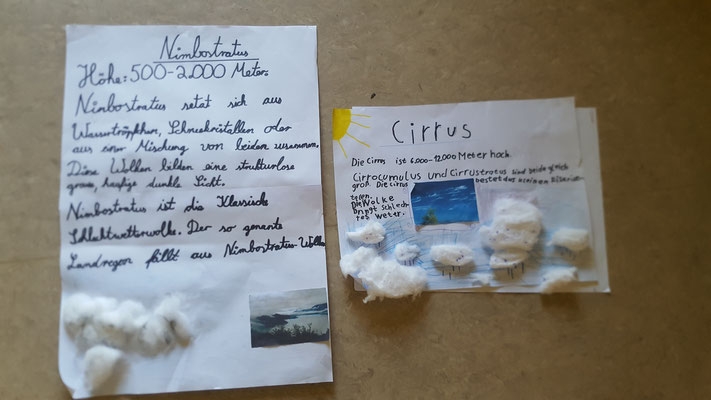 Nimbostratus
Höhe: 500-2.000 Meter
Nimbostratus setzt sich aus
Wassertröpfchen, Schneekristallen oder
aus einer Mischung von beiden zusammen.
Diese Wolken bilden eine strukturlose
graue, häufige dunkle Sicht.
Nimbostratus ist die Klassische
Schlechtwetterwolke. Der so genante
Landregen fällt aus Nimbostratus-Wolken
Cirrus
Die Cirrus ist 6.000-12.000 Meter hoch
Cirrocumulus und Cirrustratus sind beide gleich
groß Die Cirrus bestet das kleinen
Die Wolke
bringt schlech-
tes Weter.